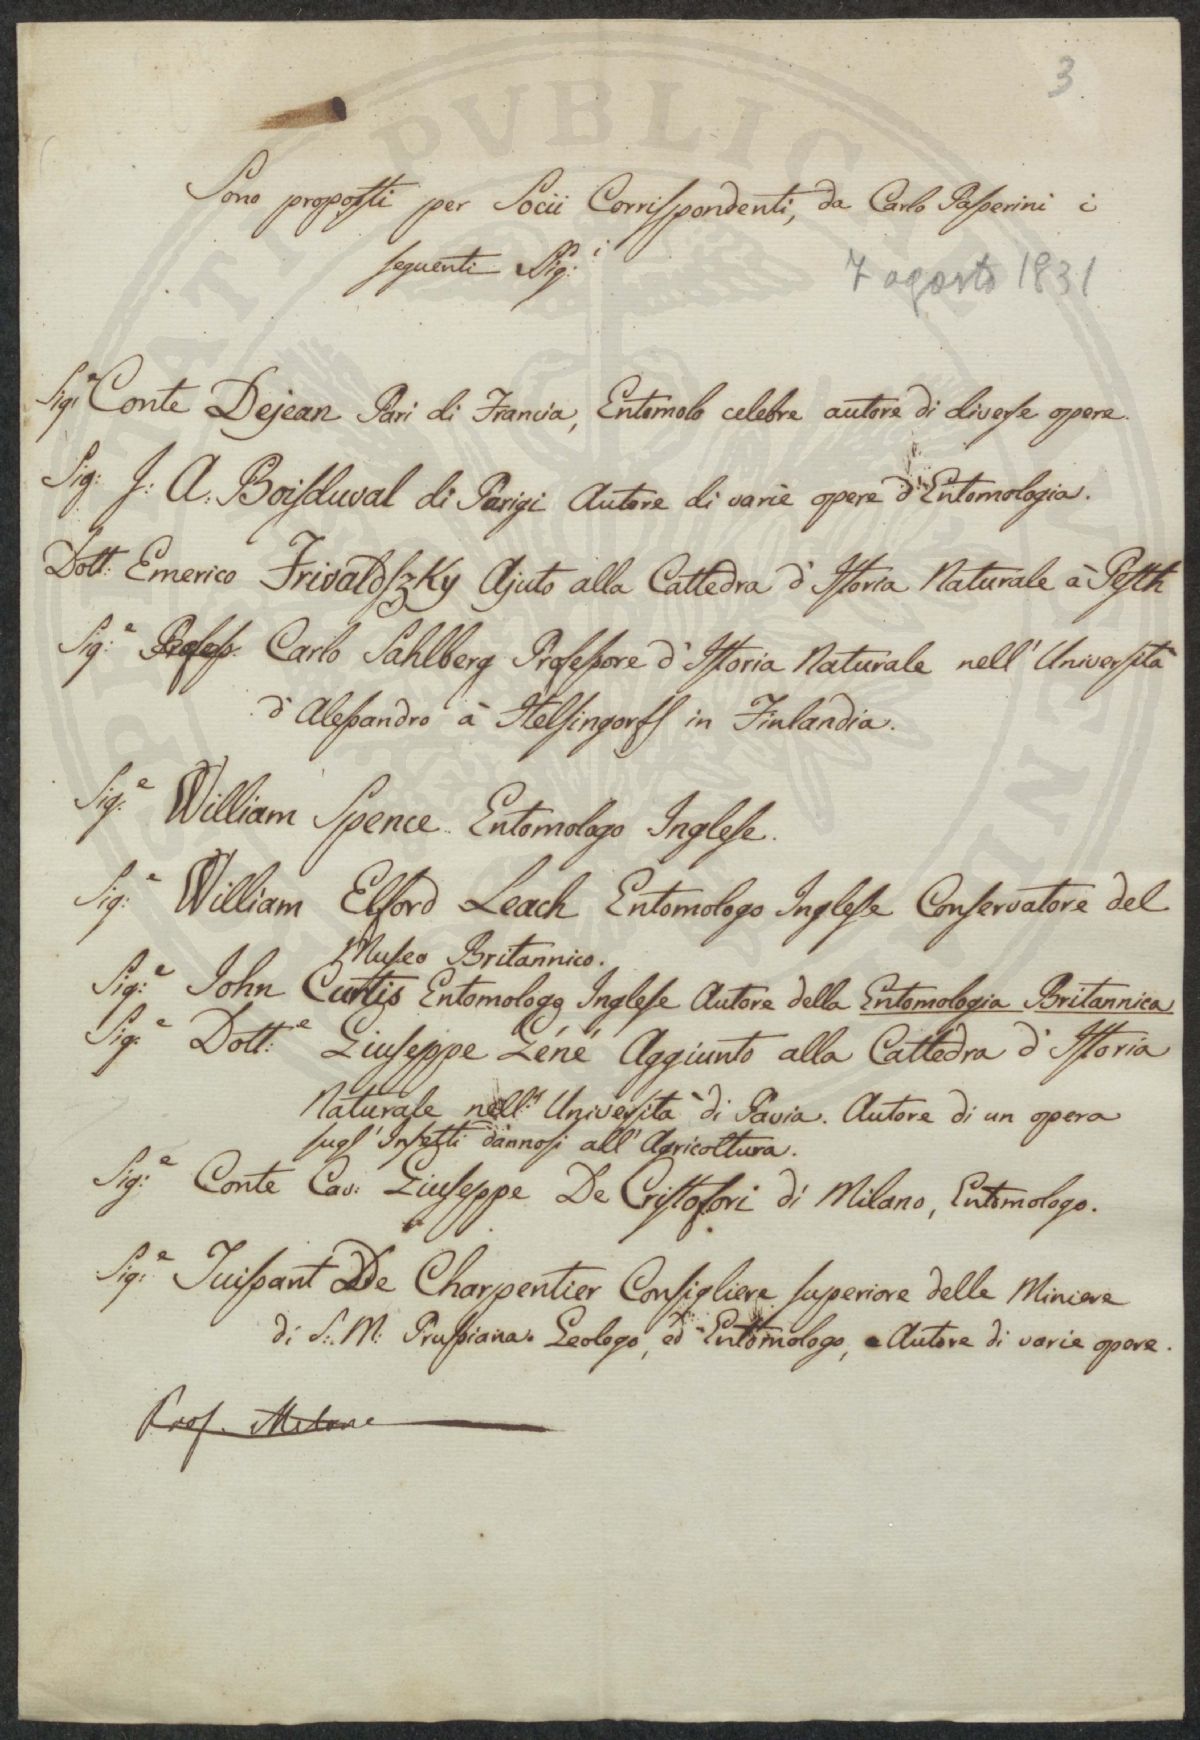 3
Sono proposti per Socii Corrispondenti, da Carlo Passerini i
seguenti Sig:i
7 agosto 1831
Sig:e Conte Dejean Pari di Francia, Entomolo celebre autore di diverse opere.
Sig: J: A: Boisduval di Parigi Autore di varie opere d'Entomologia.
Dott: Emerico Frivaldszky Ajuto alla Cattedra d'Istoria Naturale à Pesth
Sig:e Profess: Carlo Sahlberg Professore d'Istoria Naturale nell'Università
d'Alessandro à Helsingorfs in Finlandia.
Sig:e William Spence Entomologo Inglese.
Sig:e William Elford Leach Entomologo Inglese Conservatore del
Museo Britannico.
Sig:e John Curtis Entomologo Inglese Autore della Entomologia Britannica
Sig:e Dott:e Giuseppe Géné Aggiunto alla Cattedra d'Istoria
Naturale nell' Università di Pavia. Autore di un opera
sugl'Insetti dannosi all'Agricoltura.
Sig:e Conte Cav: Giuseppe De Cristofori di Milano, Entomologo.
Sig:e Tuissant De Charpentier Consigliere superiore delle Miniere
di S: M: Prussiana. Geologo, ed Entomologo, e Autore di varie opere.
Prof.